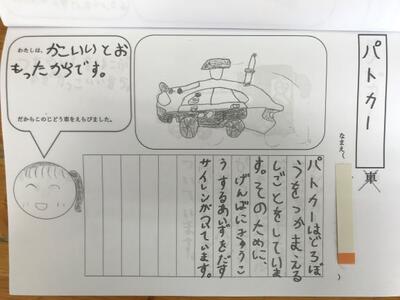 パトカー
車
なまえ(
パトカーはどろぼ
うをつかまえる
しごとをしていま
す。そのために、
げんばにきゅうこ
うするあいずをだす
サイレンがついています。
わたしは、かこいいとお
もったからです。
だからこのじどう車をえらびました。